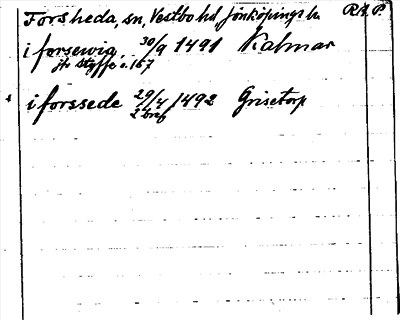 Forsheda, sn, Vestbo hd, Jönköpings l. RAP.
i forsewig 30/9 1491 Kalmar
jfr Styffe s. 167
i forssede 29/4 1492 Grisetorp
2 bref